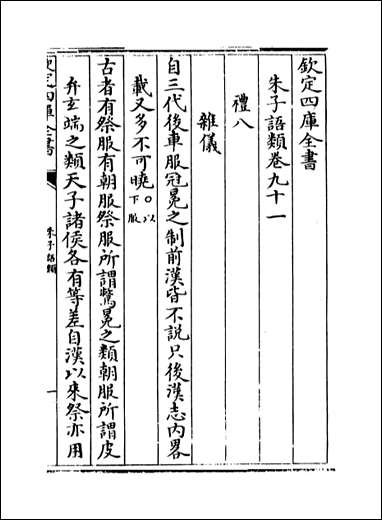 欽定四庫全書
朱子語類卷九十一
禮八
雜儀
自三代後車服冠冕之制前漢皆不說只後漢志內畧
載又多不可曉○以下服
古者有祭服有朝服祭服所謂鷩冕之類朝服所謂皮
弁玄端之類天子諸侯各有等差自漢以來祭亦用
欽定四庫全書
朱子語類
一